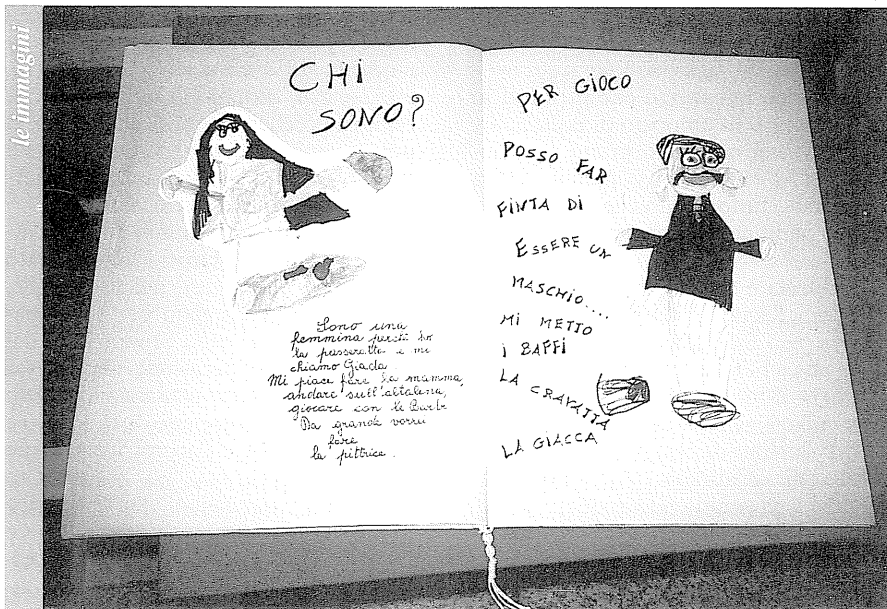 le immagini
CHI
SONO?
Sono una
femmina perché ho
la passeretta e mi
chiamo Giada
Mi piace fare la mamma,
andare sull'altalena,
giocare con le Barbi
Da grande vorrei
fare
la pittrice.
PER GIOCO
POSSO FAR
FINTA DI
ESSERE UN
MASCHIO....
MI METTO
I BAFFI
LA CRAVATTA
LA GIACCA